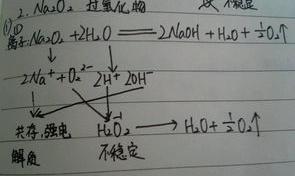 2. Na₂O₂ 过氧化物 不稳定
(1)①
离子:Na₂O₂+2H₂O══2NaOH+H₂O+½O₂↑
2Na⁺+O₂²⁻ 2H⁺ 2OH⁻
共存,强电 H₂O₂⁻¹→H₂O+½O₂↑
解质 不稳定